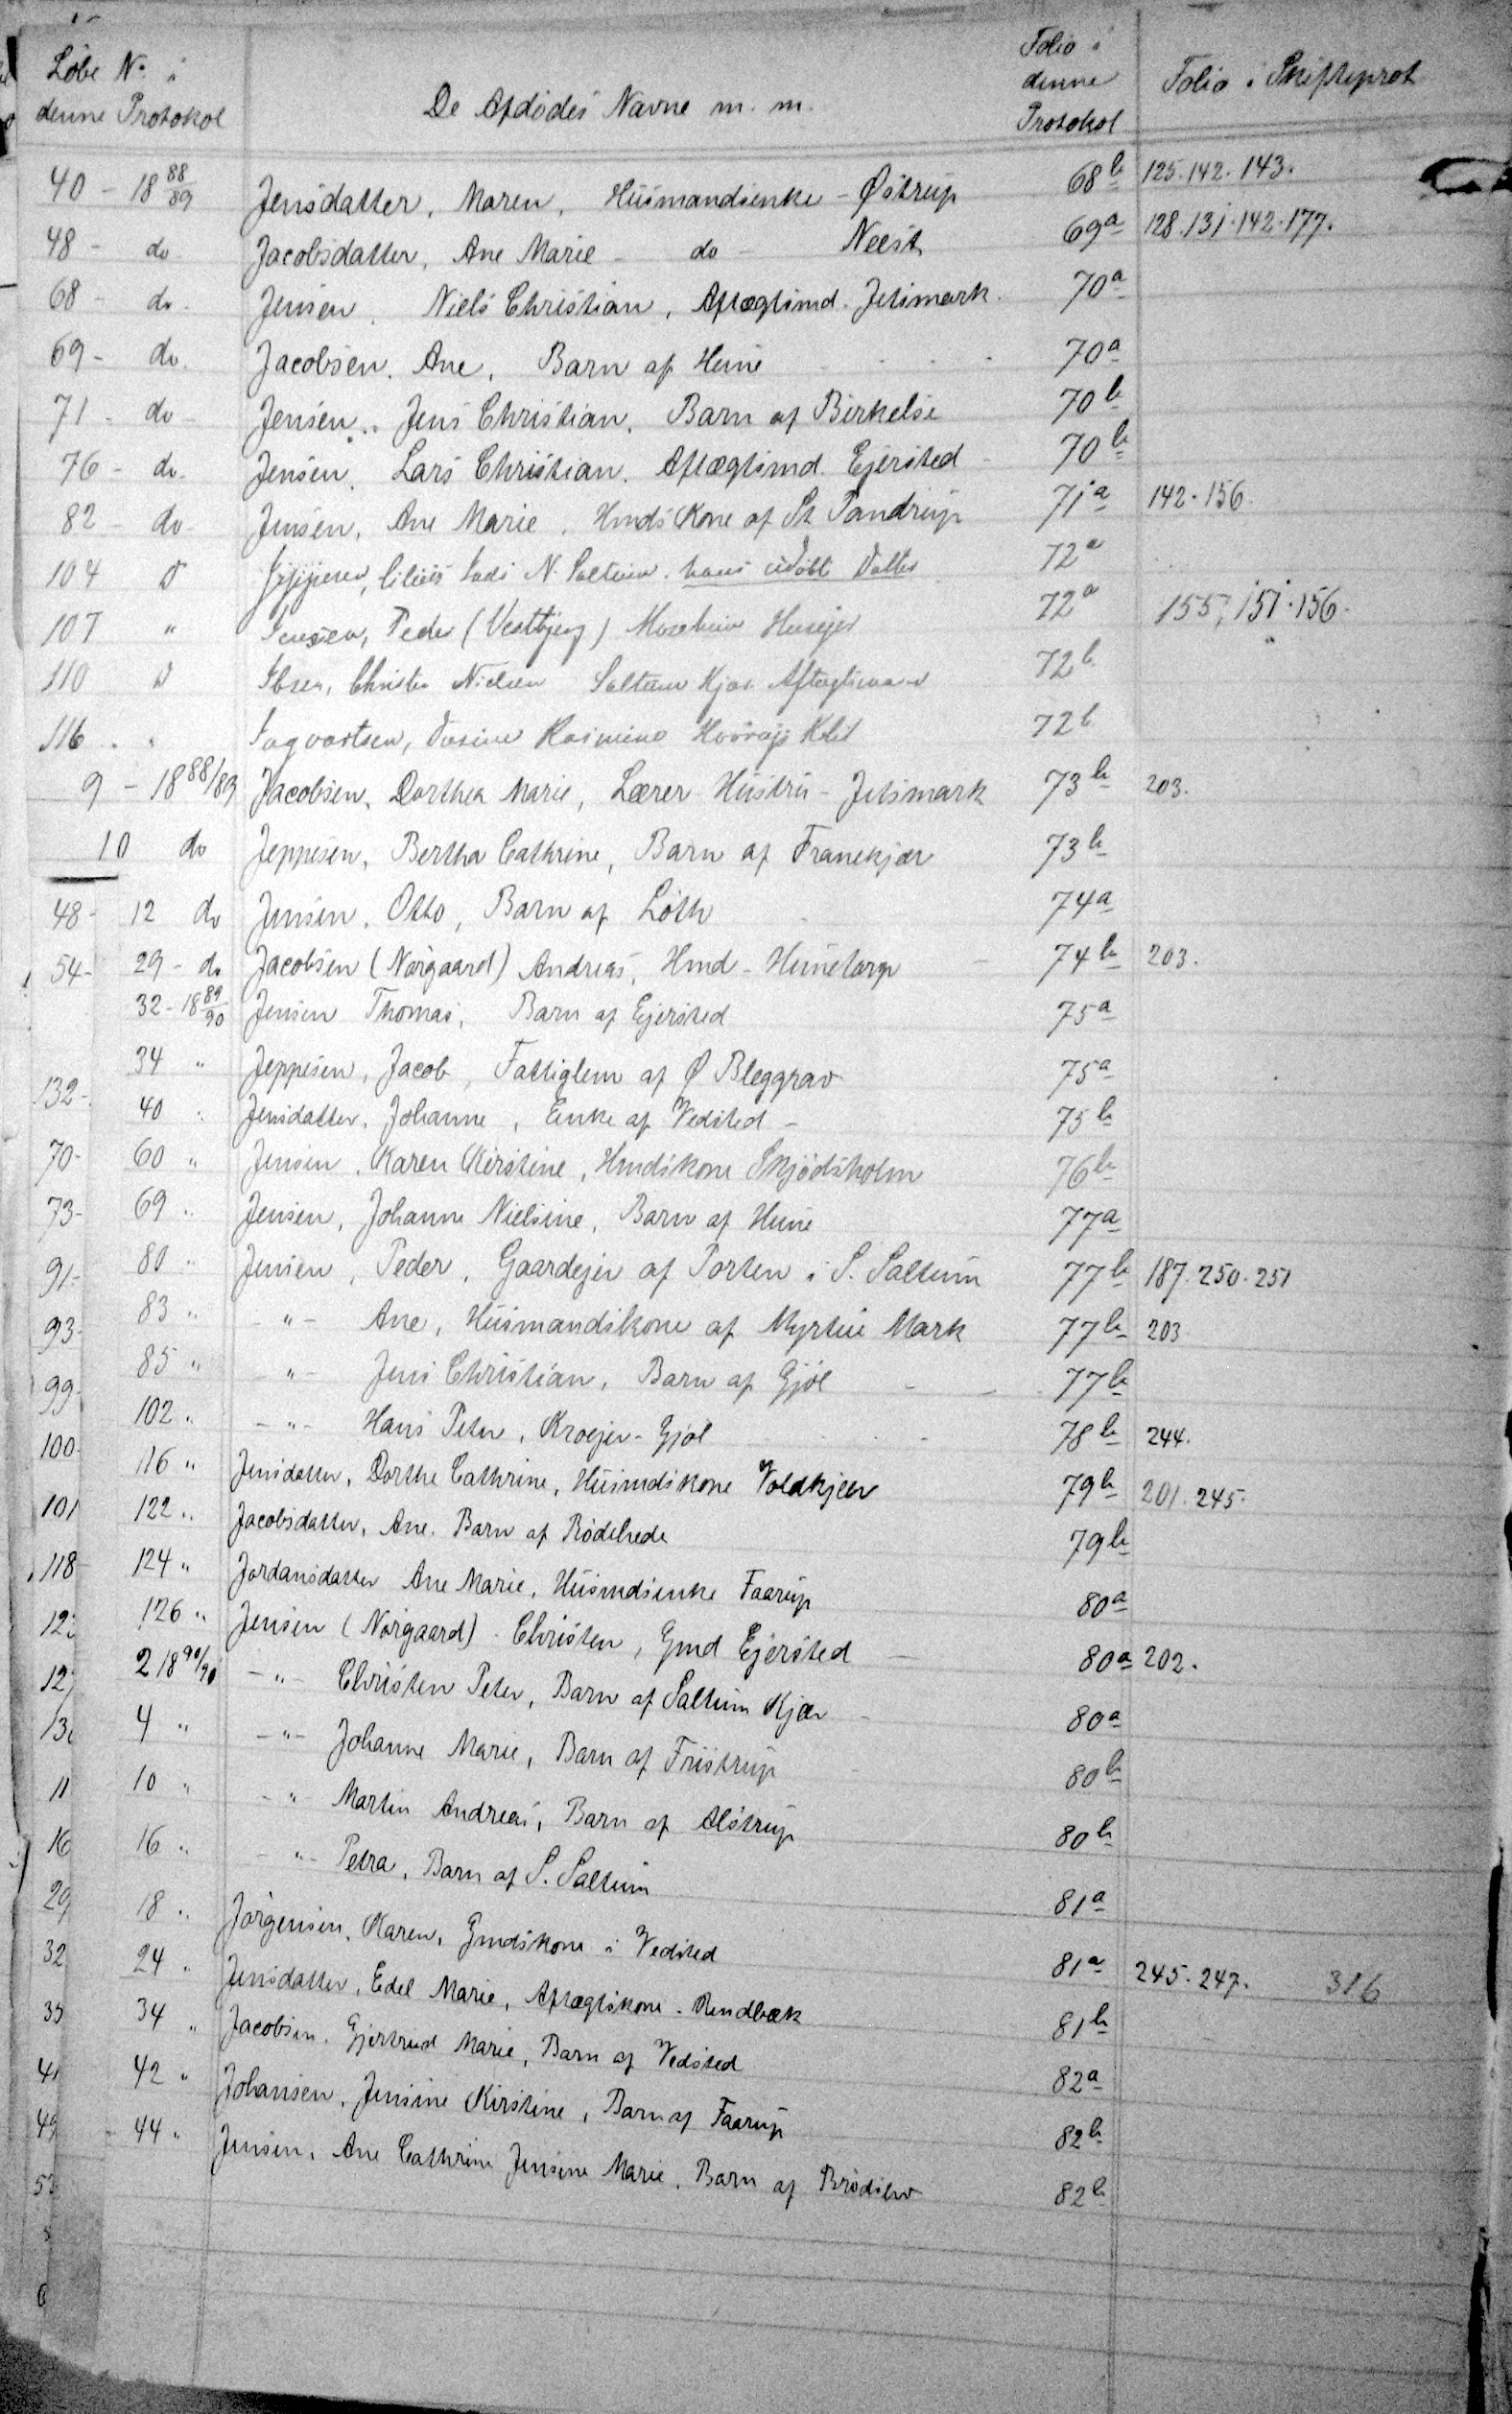 Løbe No. i denne Protokol | De Afdødes Navne m. m. | Folio i denne Protokol | Folio i Skifteprot
40 - 18 88/89 Jensdatter, Maren, Husmandsenke - Østrup 68b 125. 142. 143.
48 - do Jacobsdatter, Ane Marie - do - Neest 69a 128. 131. 142. 177.
68 - do. Jensen, Niels Christian, Aftægtsmd. Jetsmark. 70a
69 - do. Jacobsen, Ane, Barn af Hune 70a
71 - do Jensen, Jens Christian, Barn af Birkelse 70b
76 - do. Jensen, Lars Christian, Aftægtsmd. Ejersted 70b
82 - do Jensen, Ane Marie, Hmds Kone af St Pandrup 71a 142. 156.
104 N. Saltum. hans udøbt Datter 72a
107 " Jensen, Peder (Vestbjerg) Husejer 72a 155, 151. 156.
110 Ibsen, Christen Nielsen Saltum Kjær Aftægtsmand 72b
116 " Klit 72b
9 - 18 88/89 Jacobsen, Dorthea Marie, Lærer Hustru - Jetsmark 73b 203.
10 do Jeppesen, Bertha Cathrine, Barn af Franekjær 73b
48- 12 do Jensen, Otto, Barn af Løth 74a
54- 29 - do Jacobsen (Nørgaard) Andreas, Hmd - Hunetorp 74b 203.
32 - 18 89/90 Jensen Thomas, Barn af Ejersted 75a
34 " Jeppesen, Jacob, Fattiglem af Ø Bleggrav 75a
132- 40 " Jensdatter, Johanne, Enke af Vedsted - 75b
70- 60 " Jensen, Karen Kirstine, Hmdskone Skjødsholm 76b
73- 69 " Jensen, Johanne Nielsine, Barn af Hune 77a
91- 80 " Jensen, Peder, Gaardejer af Porten i S. Saltum 77b 187. 250. 251
93- 83 " - " - Ane, Husmandskone af Myrtue Mark 77b 203
99- 85 " - " - Jens Christian, Barn af Gjøl 77b
100- 102 " - " - Hans Peter, Kroejer - Gjøl 78b 244.
101 116 " Jensdatter, Dorthe Cathrine, Husmdskone Voldkjær 79b 201. 245.
118- 122 " Jacobsdatter, Ane. Barn af Rødehede 79b
124 " Jordansdatter Ane Marie, Husmdsenke Faarup 80a
126 " Jensen (Nørgaard) Christen, Gmd Ejersted 80a 202.
2 18 90/90 - " - Christen Peter, Barn af Saltum Kjær 80a
4 " - " - Johanne Marie, Barn af Fristrup 80b
11 10 " - " Martin Andreas, Barn af Alstrup 80b
16 16 " - " - Petra, Barn af S. Saltum 81a
29 18 " Jørgensen, Karen, Gmdskone i Vedsted 81a 245. 247. 316
32 24 " Jensdatter, Edel Marie, Aftægtskone. Rendbæk 81b
35 34 " Jacobsen, Gjertrud Marie, Barn af Vedsted 82a
41 42 " Johansen, Jensine Kirstine, Barn af Faarup 82b
49 - 44 " Jensen, Ane Cathrine Jensine Marie, Barn af Brødslev 82b
53